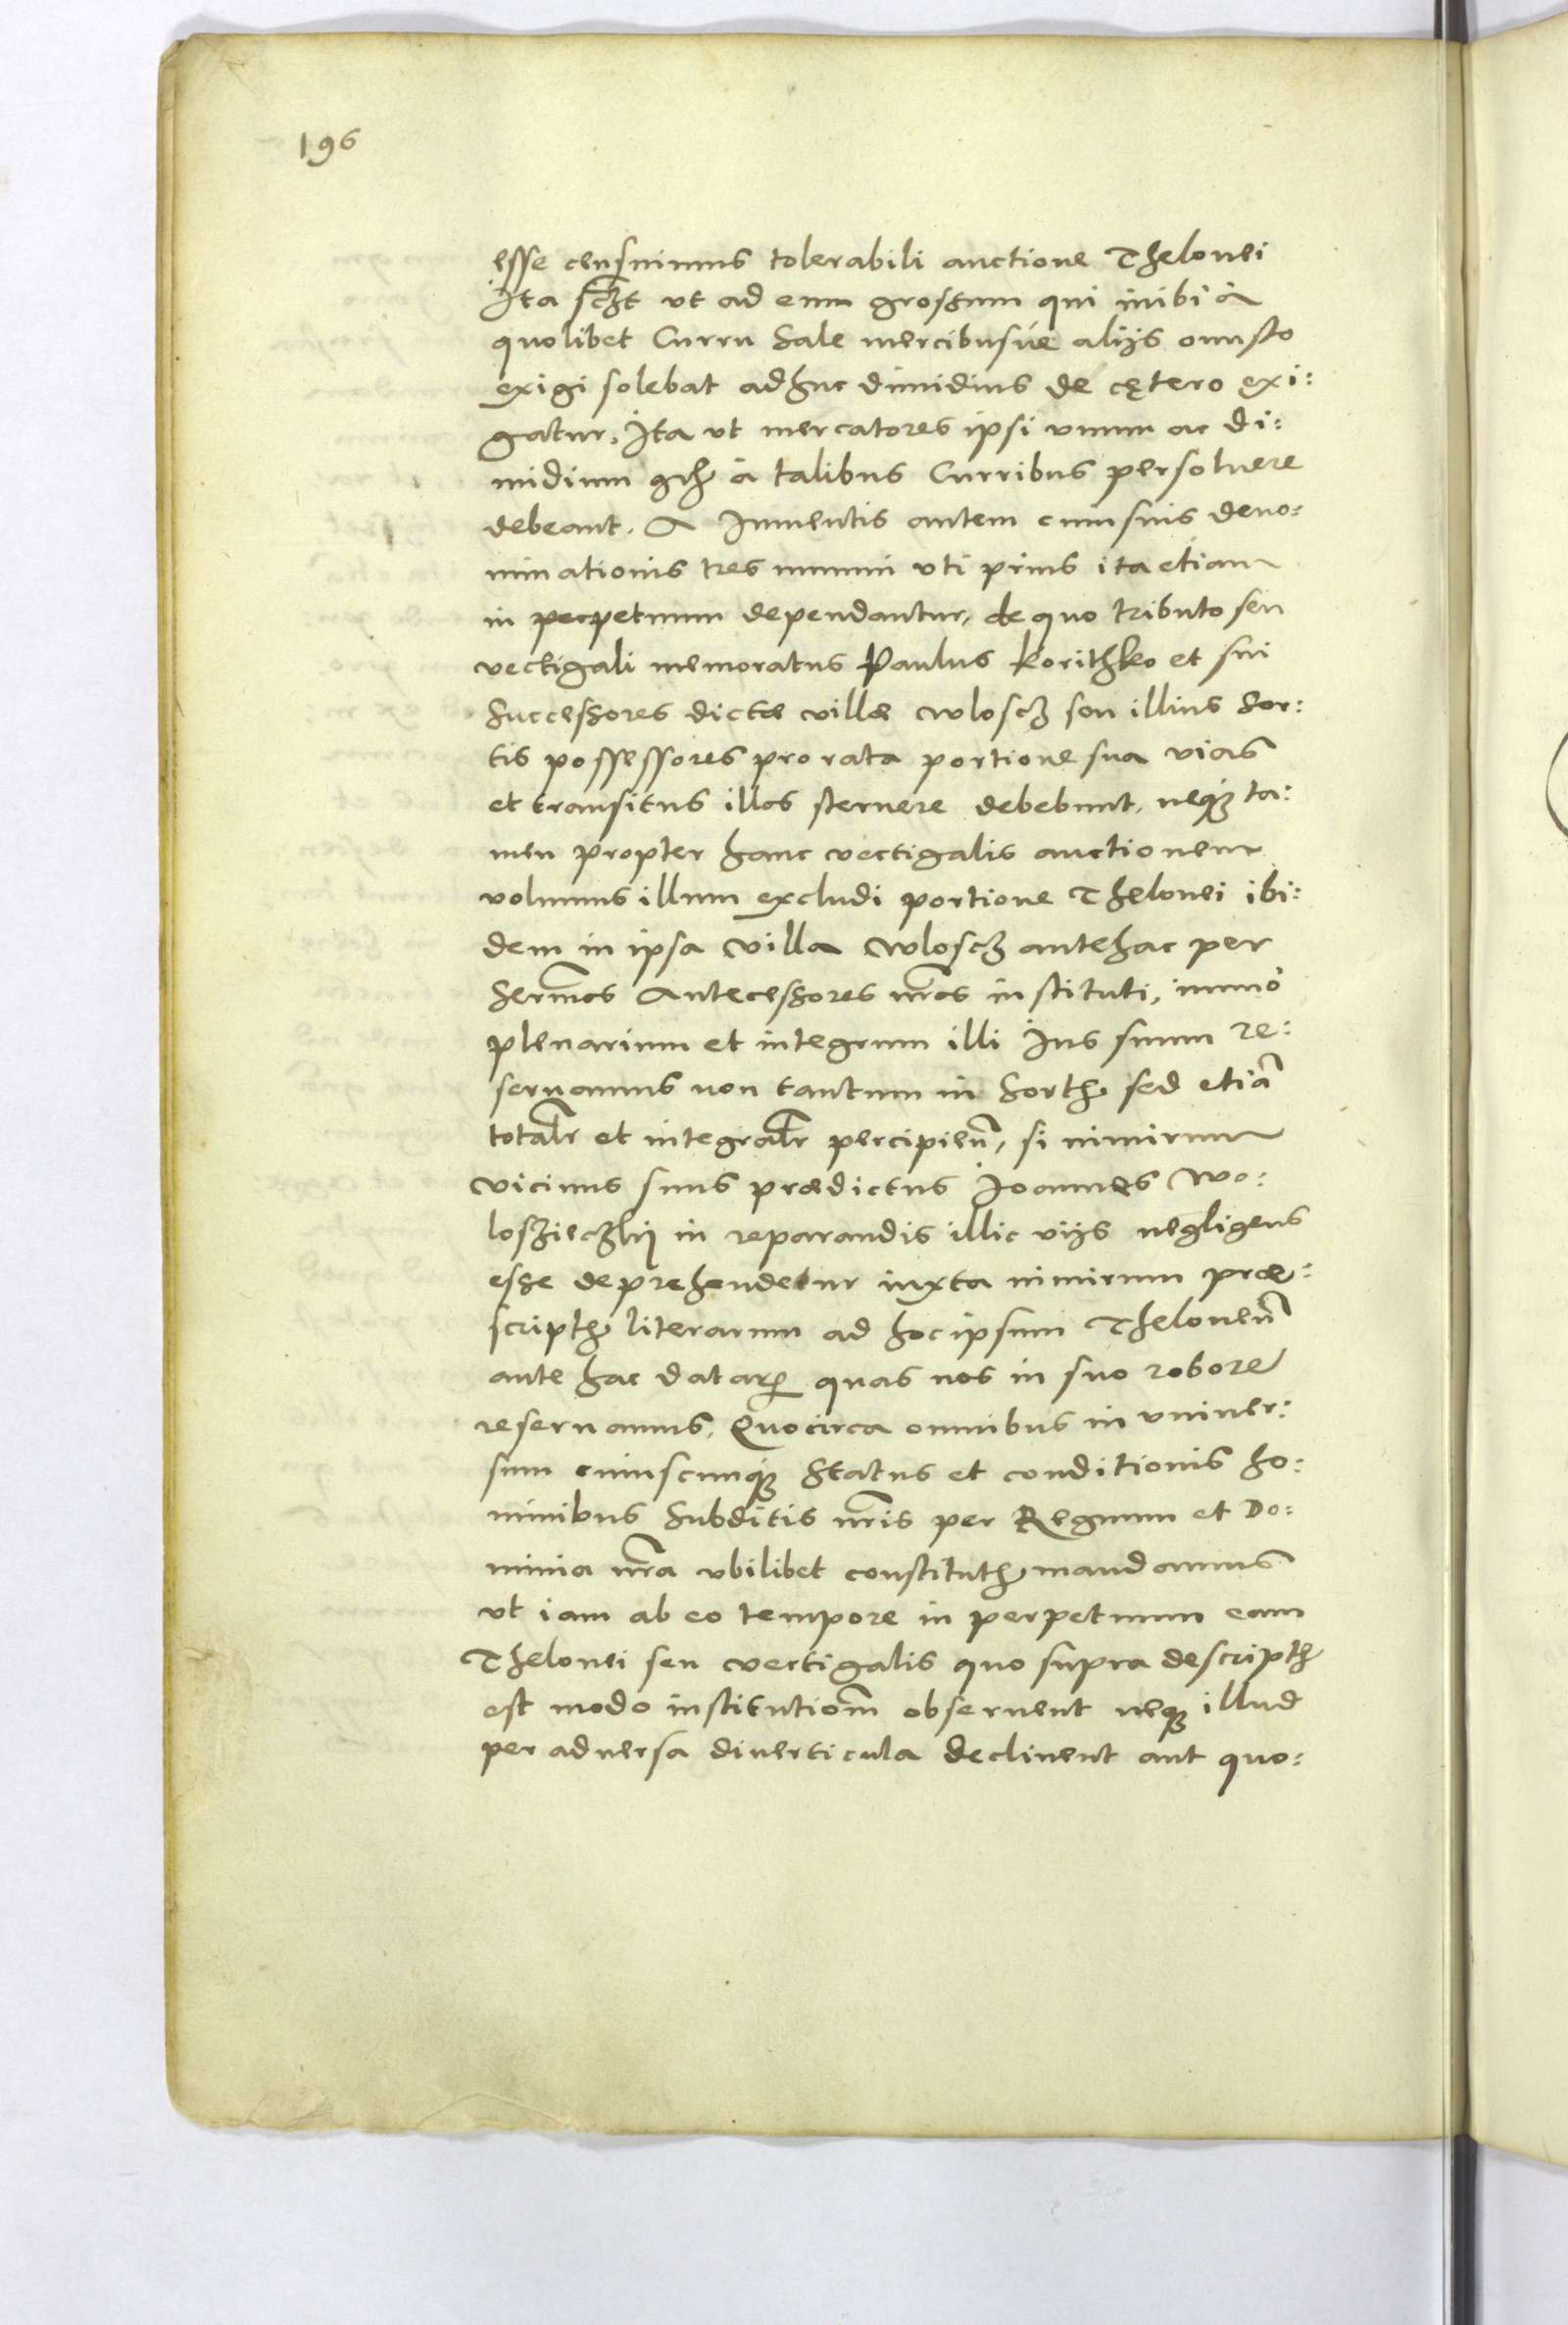 196
esse censuimus tolerabili auctione Thelonei
Ita sczt vt ad eum grossum qui inibi à
quolibet Curru Sale mercibusúe alijs onusto
exigi solebat adhuc dimidius de cętero exi:
gatur, Ita vt mercatores ipsi vnum ac di:
midium à talibus Curribus persoluere
debeant. A Iumentis autem cum suis deno:
minationis tres nummi vti prius ita etiam
in perpetuum dependantur, de quo tributo seu
vectigali memoratus Paulus Korithko et sui
Successores dictæ villæ Wloscz seu illius Sor:
tis possessores pro rata portione sua vias
et transitus illos sternere debebunt, neqz ta:
men propter hanc vectigalis auctionem
volumus illum excludi portione Thelonei ibi:
dem in ipsa villa Wloscz antehac per
Sermos Antecessores nros instituti, immò
plenarium et integrum illi Ius suum re:
seruamus non tantum in Sorth sed etiā
totalr et integralr percipien̄, si nimirum
vicinus suus prædictus Ioannes Wo:
loszieczkij in reparandis illic vijs negligens
esse deprehendetur iuxta nimirum præ:
scripth literarum ad hoc ipsum Theloneū
ante hac datarꝝ quas nos in suo robore
reseruamus. Quocirca omnibus in vniuer:
sum cuiuscunqz Status et conditionis ho:
minibus Subditis nris per Regnum et Do:
minia nra vbilibet constituth mandamus
vt iam ab eo tempore in perpetuum eam
Thelonei seu vectigalis quo supra descripth
est modo institutiom̄ obseruent neqz illud
per aduersa diuerticula declinent aut quo: